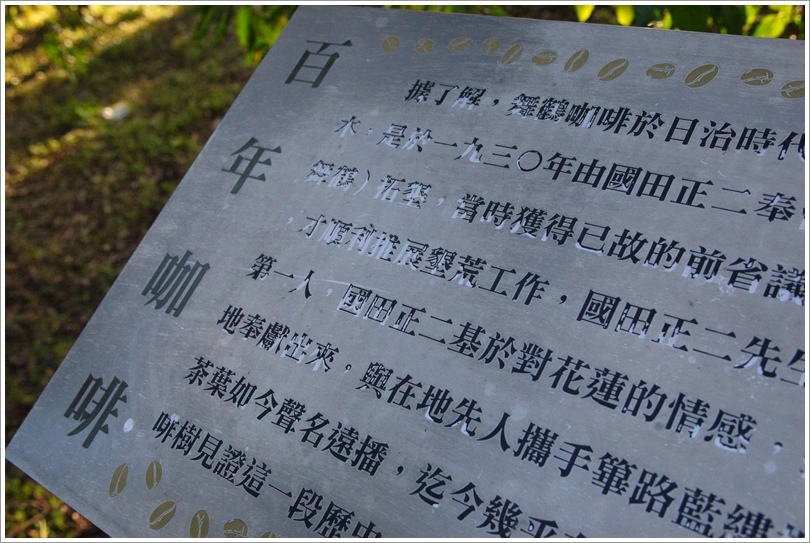 百年咖啡
據了解，舞鶴咖啡於日治時代
水，是於一九三〇年由國田正二奉
舞鶴）拓墾，當時獲得已故的前省議
，才順利推展墾荒工作，國田正二先生
第一人，國田正二基於對花蓮的情感，
地奉獻出來，與在地先人攜手篳路藍縷
茶葉如今聲名遠播，迄今幾乎
啡樹見證這一段歷史